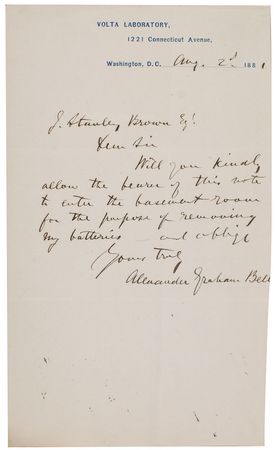 VOLTA LABORATORY,
1221 Connecticut Avenue,
Washington, D.C. Aug. 2d 1881
J. Stanley Brown Esq.
Dear Sir
Will you kindly
allow the bearer of this note
to enter the basement room
for the purpose of removing
my batteries — and oblige
Yours truly
Alexander Graham Bell